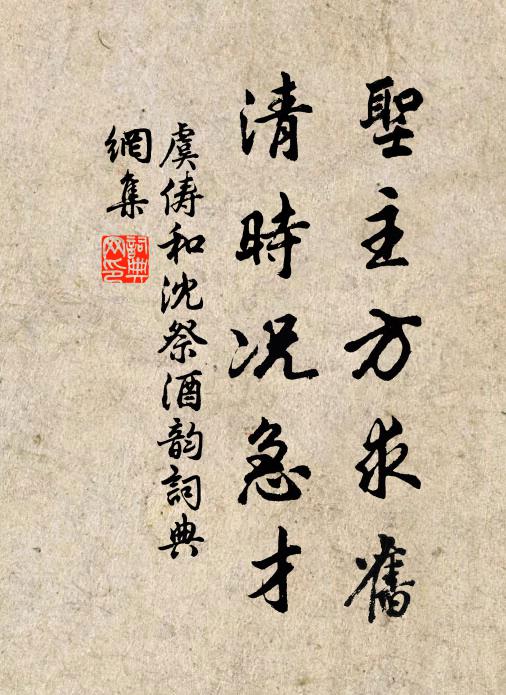 聖主方求舊
清時况急才
虞俦和沈祭酒韵詞典
網集
詞典網印